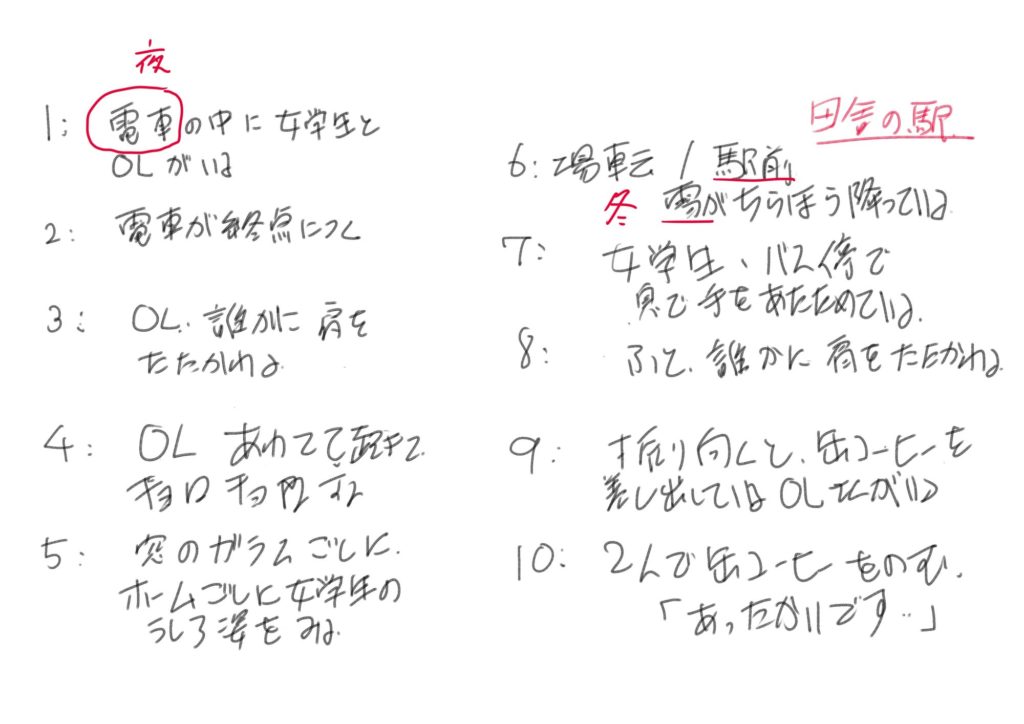 夜
1: 電車の中に女学生と
OLがいる
2: 電車が終点につく
3: OL、誰かに肩を
たたかれる
4: OL あわてて起きて
キョロキョロする
5: 窓のガラスごしに、
ホームごしに女学生の
うしろ姿をみる
田舎の駅
6: 場転 / 駅前
冬 雪がちらほら降っている
7: 女学生、バス停で
息で手をあたためている。
8: ふと、誰かに肩をたたかれる
9: 振り向くと、缶コーヒーを
差し出しているOLさんがいる
10: 2人で缶コーヒーをのむ。
「あったかいです‥」